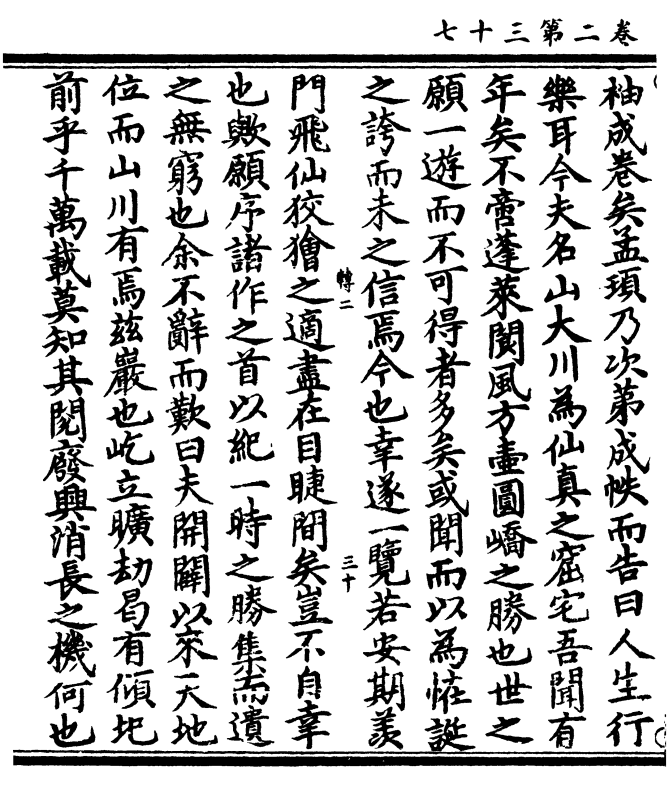 卷二第三十七
袖成卷矣孟頊乃次第成帙而告曰人生行
樂耳今夫名山大川為仙真之窟宅吾聞有
年矣不啻蓬萊閬風方壼圓嶠之勝也世之
願一遊而不可得者多矣或聞而以為恠誕
之誇而未之信焉今也幸遂一覽若安期羨
轉二
三十
門飛仙狡獪之適盡在目睫間矣豈不自幸
也歟願序諸作之首以紀一時之勝集而遺
之無窮也余不辭而歎曰夫開闢以來一天地
位而山川有焉茲巖也屹立曠劫曷有傾圯
前乎千萬載莫知其閱廢興消長之機何也